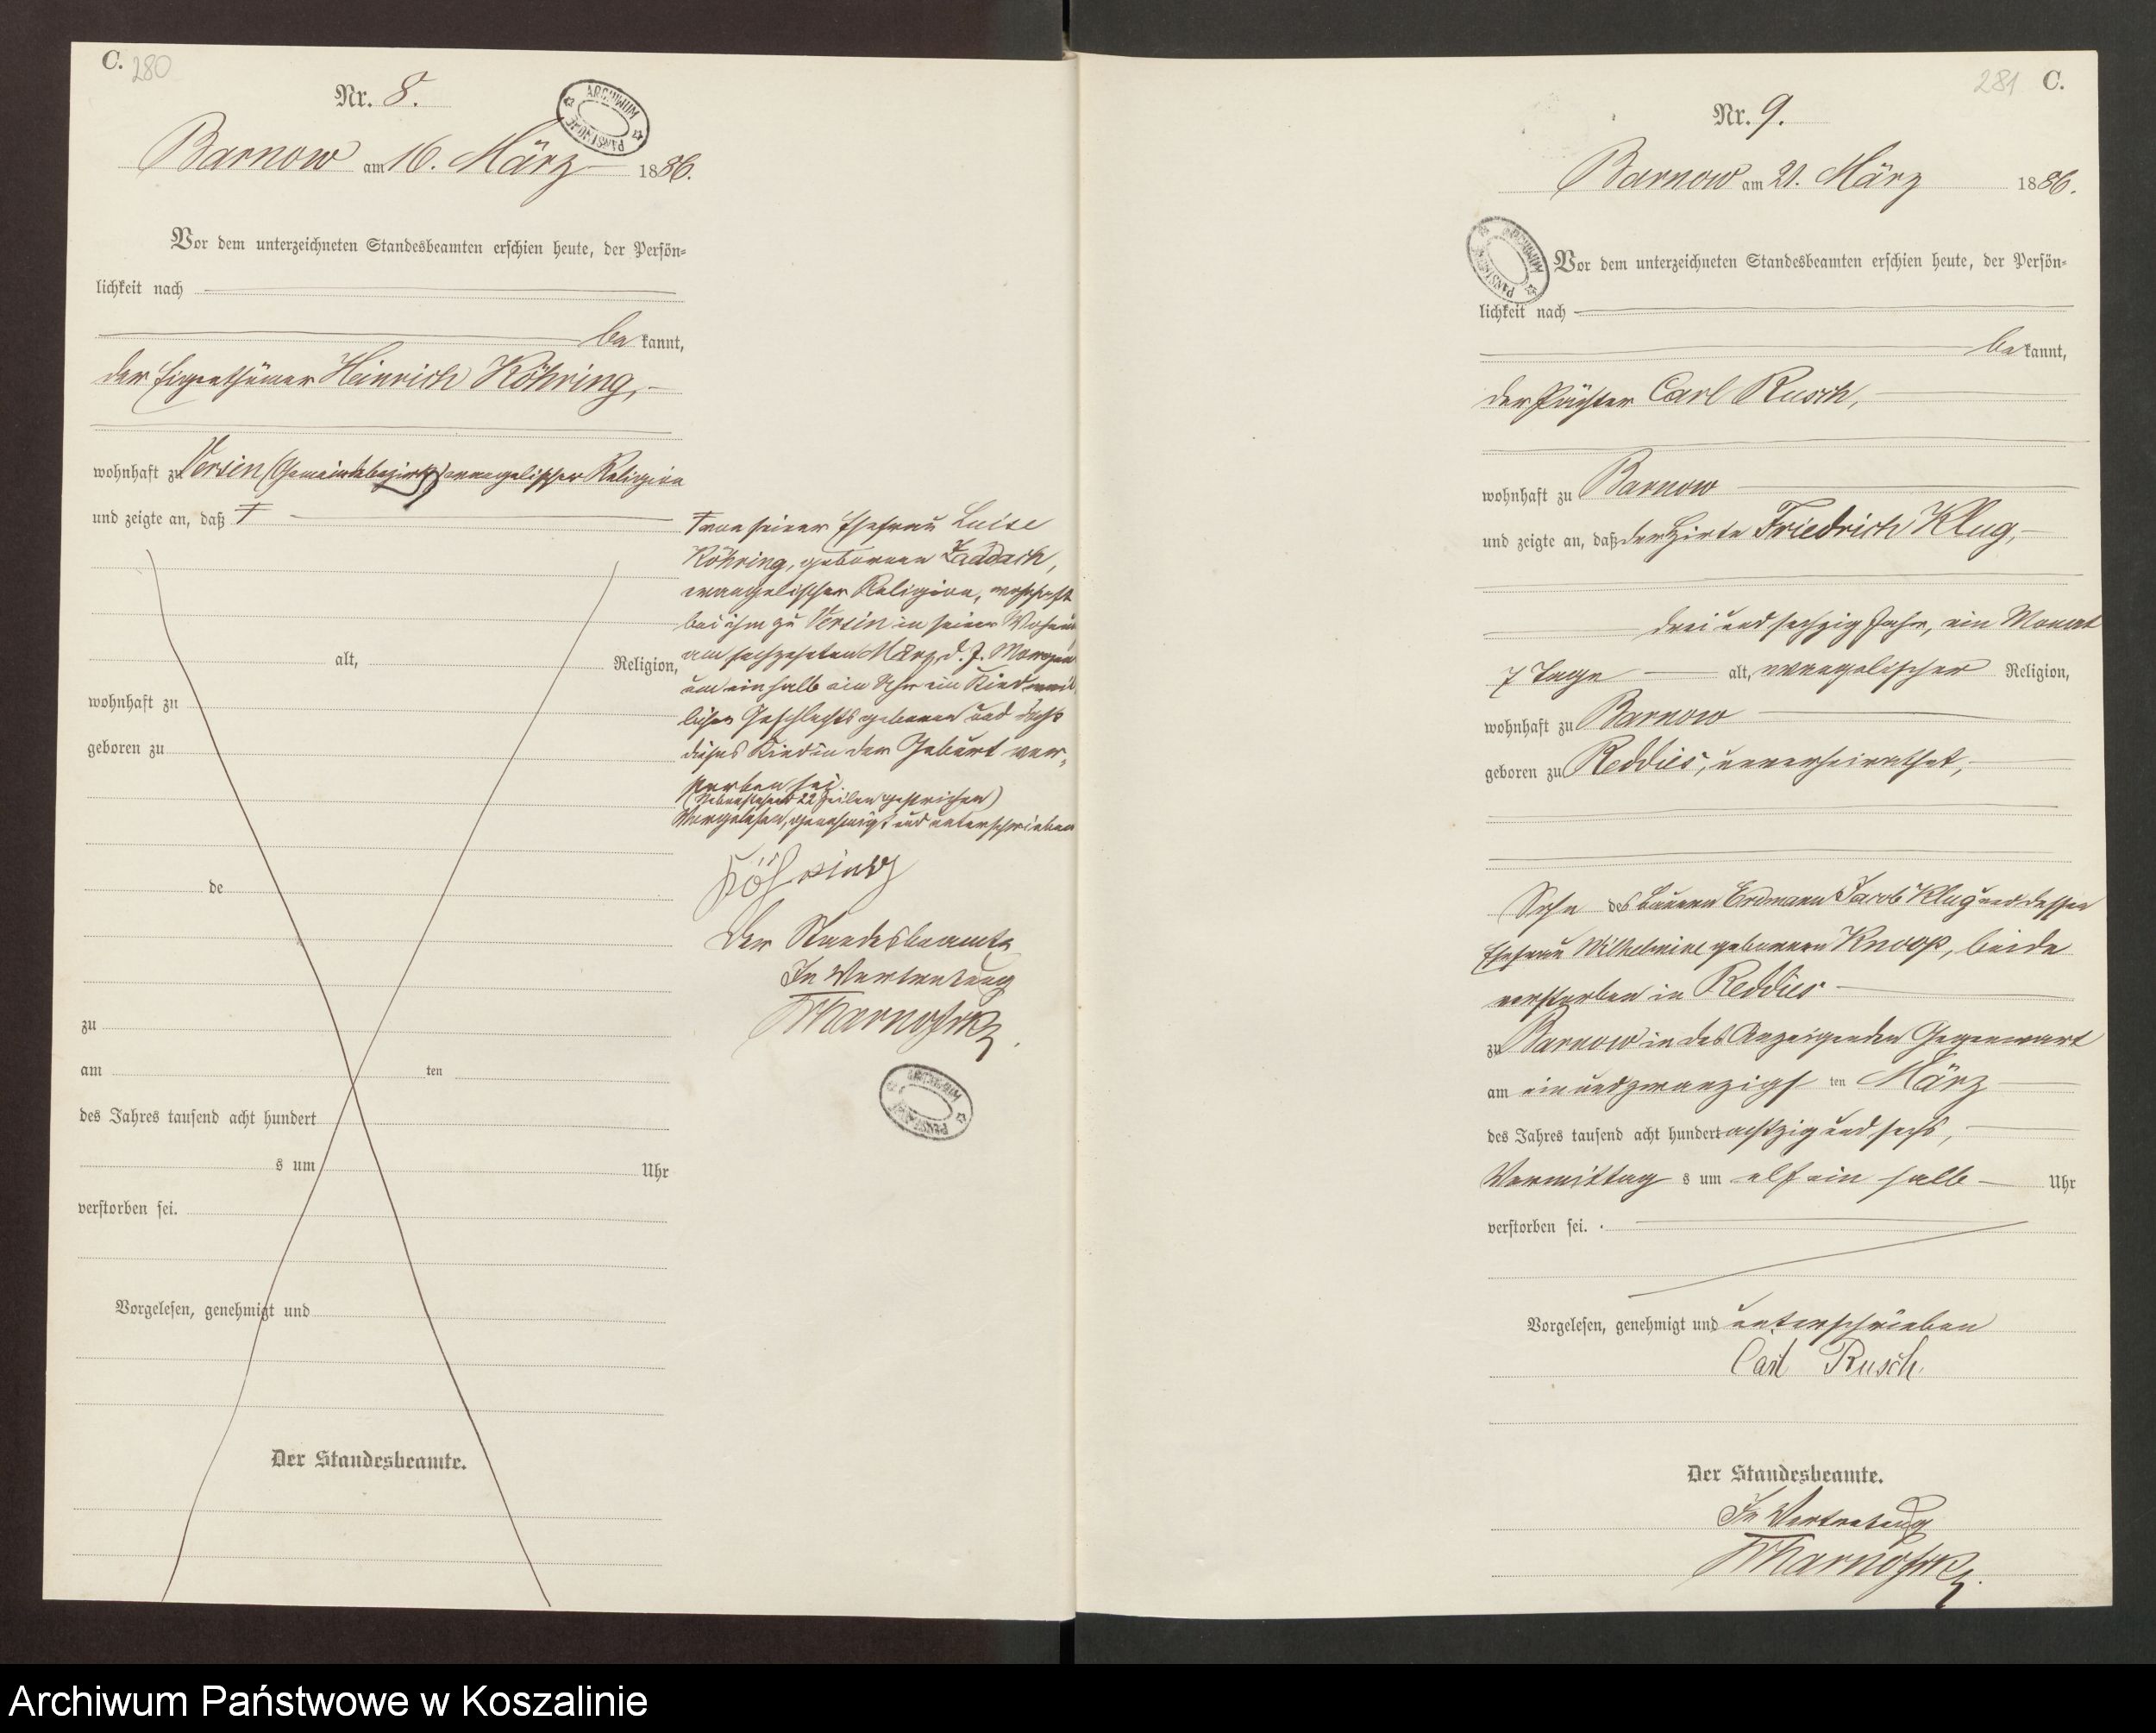 C. 280
Nr. 8.
ARCHIWUM PAŃSTWOWE
Barnow am 16. März 1886.
Vor dem unterzeichneten Standesbeamten erschien heute, der Persön-
lichkeit nach
be kannt,
der Eigenthümer Heinrich Röhring,
wohnhaft zu Versin (Gemeindebezirk) evangelischer Religion
und zeigte an, daß
von seiner Ehefrau Luise
Röhring, geborenen Zaddach,
evangelischer Religion, wohnhaft
bei ihm zu Versin in seiner
alt, Religion,
am sechzehnten März d. J. Morgens
um ein halb ein Uhr ein Kind
wohnhaft zu
lichen Geschlechts geboren und daß
geboren zu
dieses Kind in der Geburt ver-
storben sei.
(Nebenstehend 22 Zeilen gestrichen)
Vorgelesen, genehmigt und unterschrieben
Röhring
de
Der Standesbeamte
In Vertretung
zu
am ten
des Jahres tausend acht hundert
s um Uhr
verstorben sei.
Vorgelesen, genehmigt und
Der Standesbeamte.
ARCHIWUM PAŃSTWOWE
281 C.
Nr. 9.
Barnow am 21. März 1886.
ARCHIWUM PAŃSTWOWE
Vor dem unterzeichneten Standesbeamten erschien heute, der Persön-
lichkeit nach
be kannt,
der Pächter Carl Rusch,
wohnhaft zu Barnow
und zeigte an, daß der Hirte Friedrich Klug,
drei und sechzig Jahr, ein Monat
7 Tage alt, evangelischer Religion,
wohnhaft zu Barnow
geboren zu Reddies, unverheirathet,
Sohn des Bauern Erdmann Jacob Klug und dessen
Ehefrau Wilhelmine geborenen Knoop, beide
verstorben in Reddies
zu Barnow in des Anzeigenden Gegenwart
am ein und zwanzigs ten März
des Jahres tausend acht hundert achtzig und sechs,
Vormittag s um elf ein halb Uhr
verstorben sei.
Vorgelesen, genehmigt und unterschrieben
Carl Rusch.
Der Standesbeamte.
In Vertretung
Archiwum Państwowe w Koszalinie